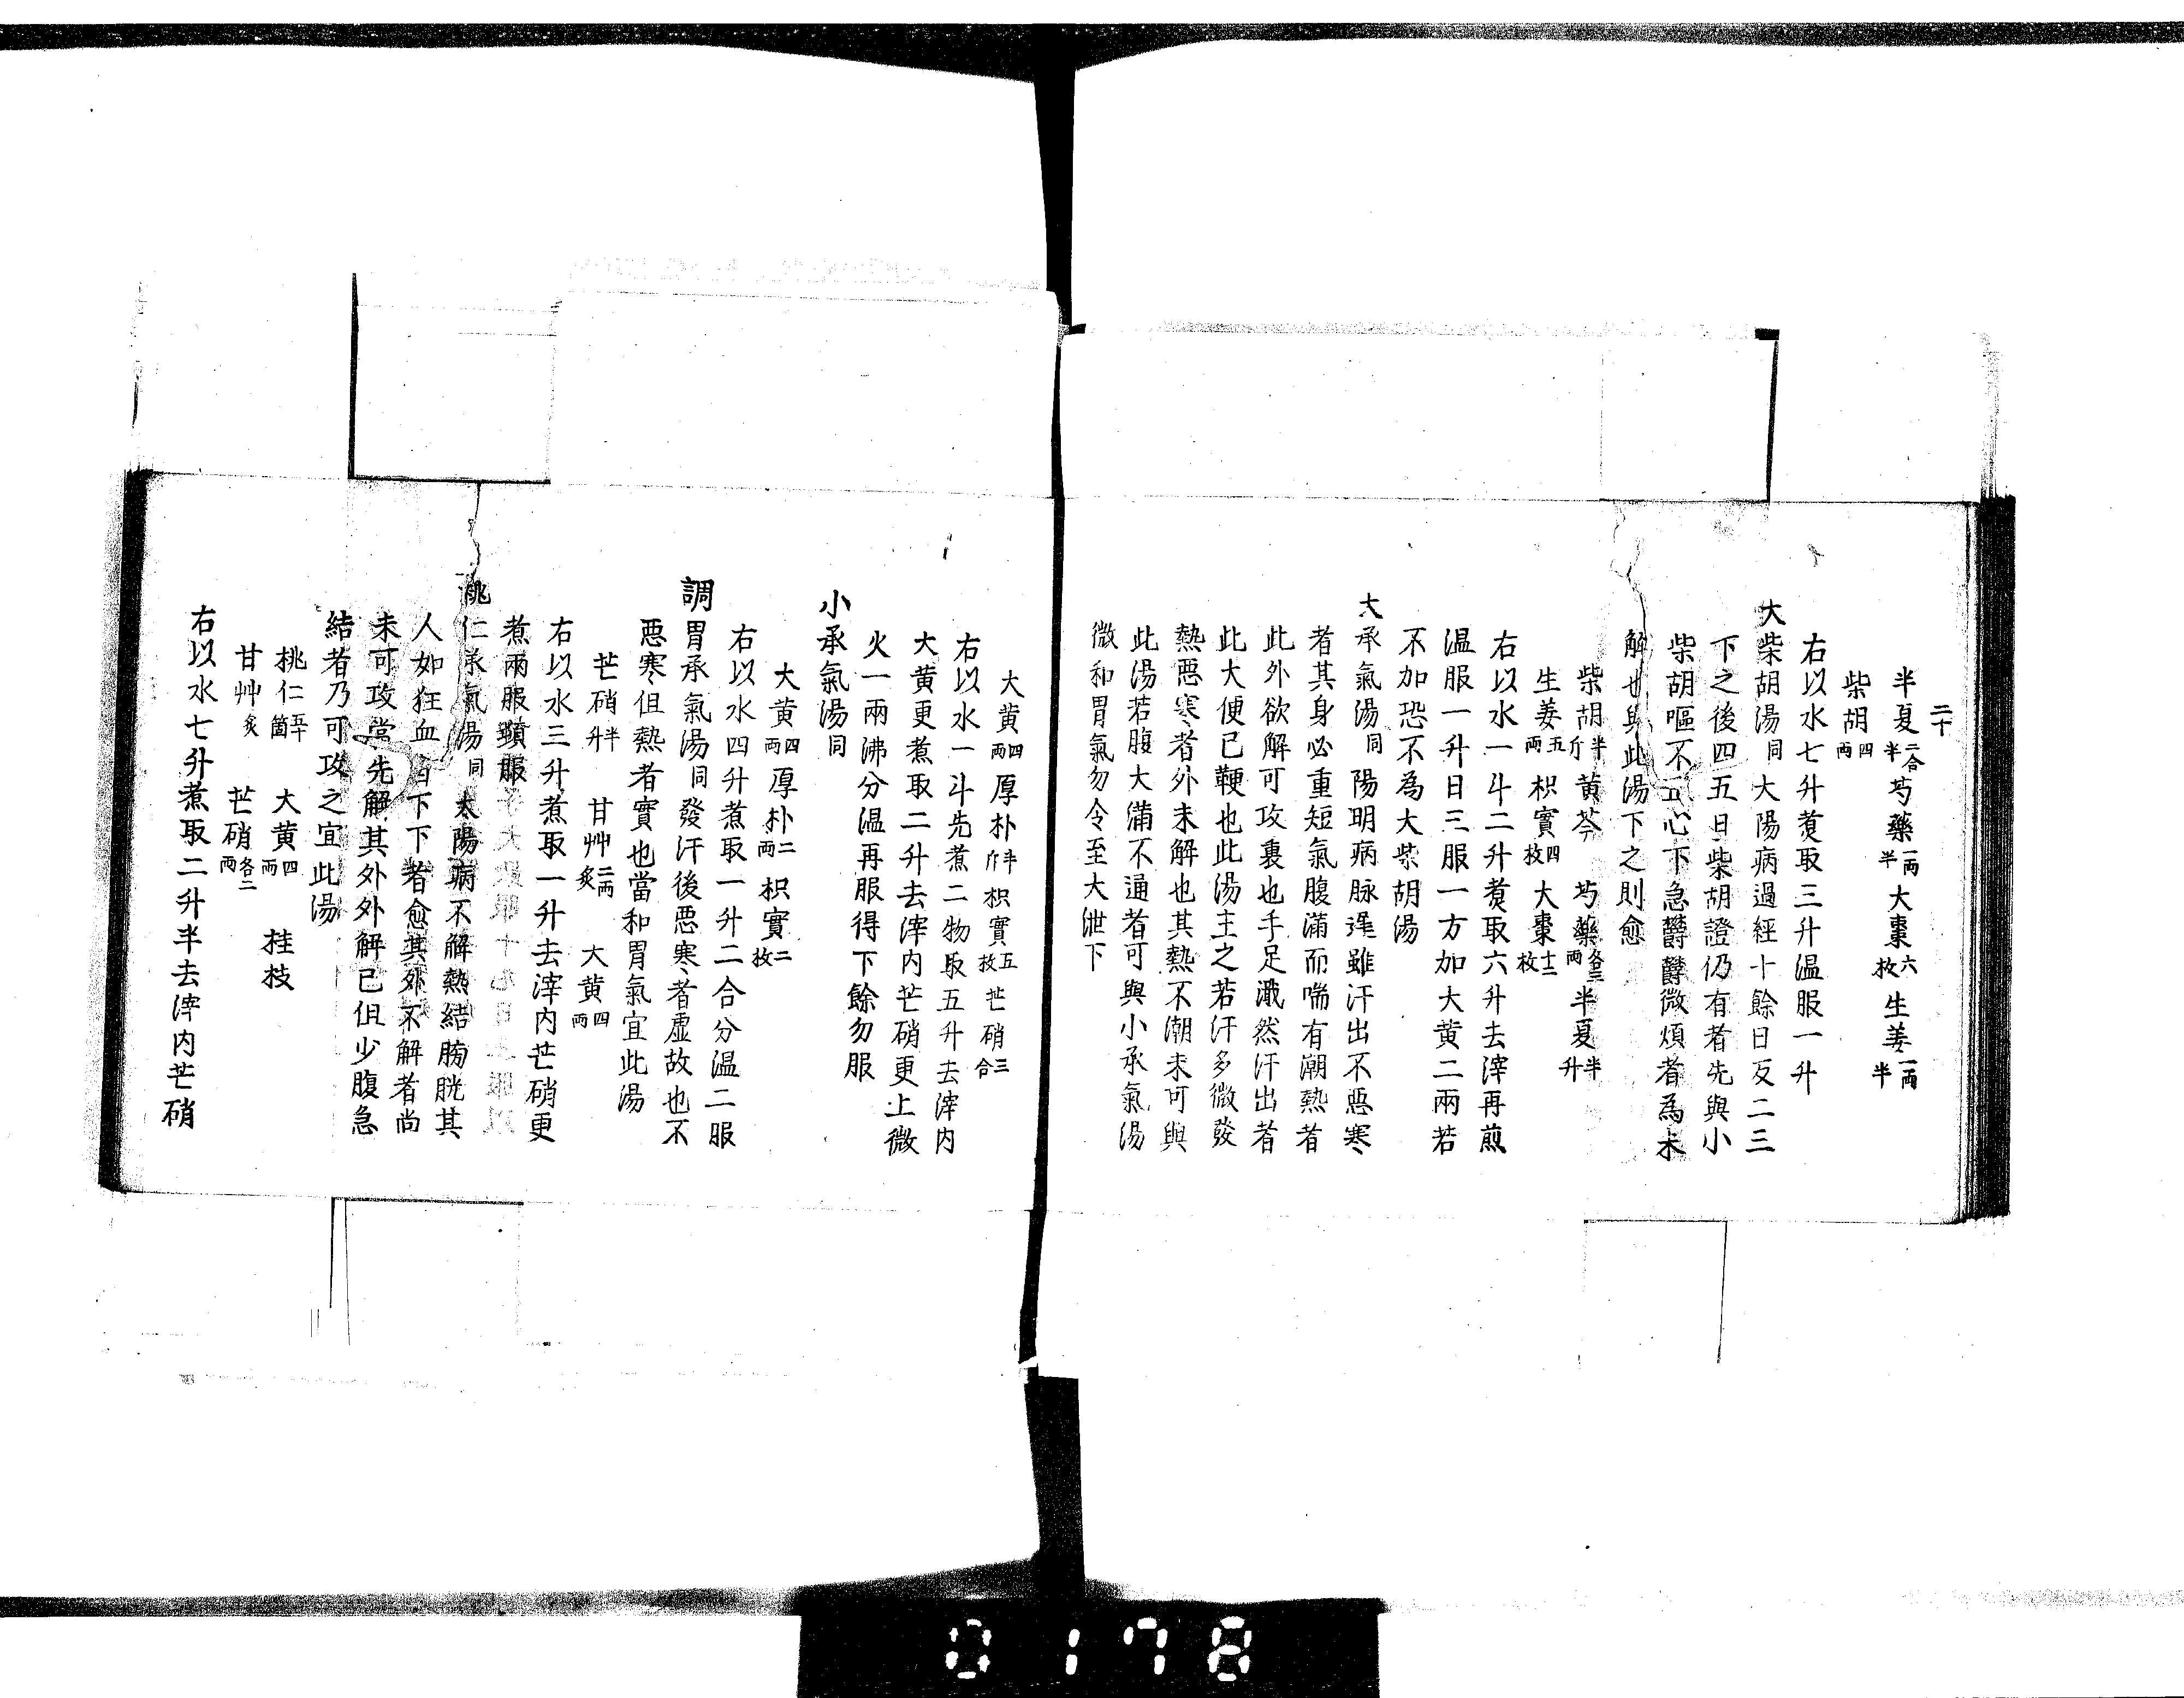 二十
半夏二合半芍藥一兩半大棗六枚生姜一兩半
柴胡四兩
右以水七升煑取三升温服一升
大柴胡湯同大陽病過經十餘日反二三
下之後四五日柴胡證仍有者先與小
柴胡嘔不心下急欝欝微煩者為未
解也與此湯下之則愈
柴胡半斤黄芩芍藥各三兩半夏半升
生姜五兩枳實四枚大棗十二枚
右以水一斗二升煑取六升去滓再煎
温服一升日三服一方加大黄二兩若
不加恐不為大柴胡湯
大承氣湯同陽明病脉遅雖汗出不悪寒
者其身必重短氣腹滿而喘有潮熱者
此外欲解可攻裏也手足濈然汗出者
此大便已鞕也此湯主之若汗多微發
熱悪寒者外未解也其熱不潮未可與
此湯若腹大滿不通者可與小承氣湯
微和胃氣勿令至大泄下
大黄四兩厚朴半斤枳實五枚芒硝三合
右以水一斗先煮二物取五升去滓内
大黄更煮取二升去滓内芒硝更上微
火一兩沸分温再服得下餘勿服
小承氣湯同
大黄四兩厚朴二兩枳實二枚
右以水四升煮取一升二合分温二服
調胃承氣湯同發汗後悪寒者虚故也不
悪寒但熱者實也當和胃氣宜此湯
芒硝半升甘艸二兩炙大黄四兩
右以水三升煮取一升去滓内芒硝更
煮兩服頓服
桃仁承氣湯同太陽病不解熱結膀胱其
人如狂血自下下者愈其外不解者尚
未可攻當先解其外外解已但少腹急
結者乃可攻之宜此湯
桃仁五十箇大黄四兩桂枝
甘艸炙芒硝各二兩
右以水七升煮取二升半去滓内芒硝
0178